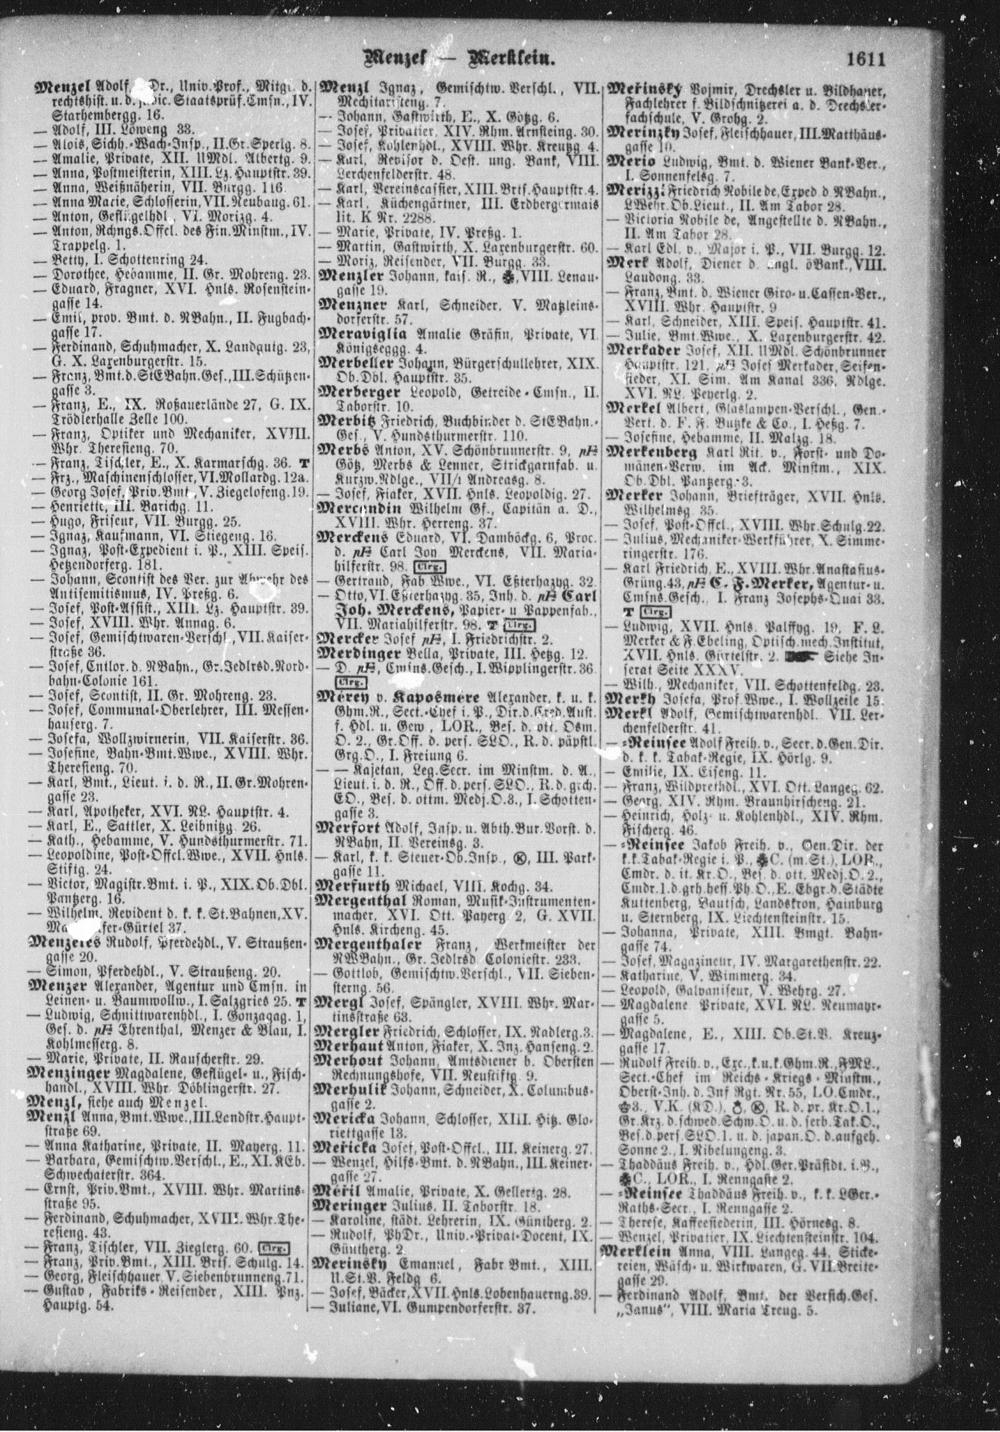 Menzel — Merklein.
1611
Menzel Adolf, Dr., Univ.Prof., Mitgl. d.
rechtshist. u. d. judic. Staatsprüf.Cmsn., IV.
Starhembergg. 16.
— Adolf, III. Löweng 33.
— Alois, Sichh.-Wach-Insp., II.Gr.Sperlg. 8.
— Amalie, Private, XII. UMdl. Albertg. 9.
— Anna, Postmeisterin, XIII. Lz. Hauptstr. 39.
— Anna, Weißnäherin, VII. Burgg. 116.
— Anna Marie, Schlosserin, VII. Neubaug. 61.
— Anton, Geflügelhdl., VI. Morizg. 4.
— Anton, Rchngs.Offcl. des Fin.Minstm., IV.
Trappelg. 1.
— Betty, I. Schottenring 24.
— Dorothee, Hebamme, II. Gr. Mohreng. 23.
— Eduard, Fragner, XVI. Hnls. Rosenstein-
gasse 14.
— Emil, prov. Bmt. d. NBahn., II. Fugbach-
gasse 17.
— Ferdinand, Schuhmacher, X. Landgutg. 23,
G. X. Laxenburgerstr. 15.
— Franz, Bmt.d.StEBahn.Ges., III.Schützen-
gasse 3.
— Franz, E., IX. Roßauerlände 27, G. IX.
Trödlerhalle Zelle 100.
— Franz, Optiker und Mechaniker, XVIII.
Whr. Theresieng. 70.
— Franz, Tischler, E., X. Karmarschg. 36. T
— Frz., Maschinenschlosser, VI. Mollardg. 12a.
— Georg Josef, Priv.Bmt., V. Ziegelofeng. 19.
— Henriette, III. Barichg. 11.
— Hugo, Friseur, VII. Burgg. 25.
— Ignaz, Kaufmann, VI. Stiegeng. 16.
— Ignaz, Post-Expedient i. P., XIII. Speis.
Hetzendorferg. 181.
— Johann, Scontist des Ver. zur Abwehr des
Antisemitismus, IV. Preßg. 6.
— Josef, Post-Assist., XIII. Lz. Hauptstr. 39.
— Josef, XVIII. Whr. Annag. 6.
— Josef, Gemischtwaren-Verschl., VII. Kaiser-
straße 36.
— Josef, Cntlor. d. NBahn., Gr. Jedlrsd. Nord-
bahn-Colonie 161.
— Josef, Scontist, II. Gr. Mohreng. 23.
— Josef, Communal-Oberlehrer, III. Messen-
hauserg. 7.
— Josefa, Wollzwirnerin, VII. Kaiserstr. 36.
— Josefine, Bahn-Bmt.Wwe., XVIII. Whr.
Theresieng. 70.
— Karl, Bmt., Lieut. i. d. R., II. Gr. Mohren-
gasse 23.
— Karl, Apotheker, XVI. NL. Hauptstr. 4.
— Karl, E., Sattler, X. Leibnitzg. 26.
— Kath., Hebamme, V. Hundsthurmerstr. 71.
— Leopoldine, Post-Offcl.Wwe., XVII. Hnls.
Stiftg. 24.
— Victor, Magistr.Bmt. i. P., XIX. Ob.Dbl.
Pantzerg. 16.
— Wilhelm, Revident d. k. k. St.Bahnen, XV.
fer-Gürtel 37.
Menzeles Rudolf, Pferdehdl., V. Straußen-
gasse 20.
— Simon, Pferdehdl., V. Straußeng. 20.
Menzer Alexander, Agentur und Cmsn. in
Leinen- u. Baumwollw., I. Salzgries 25. T
— Ludwig, Schnittwarenhdl., I. Gonzagag. 1,
Ges. d. pß Ehrenthal, Menzer & Blau, I.
Kohlmesserg. 8.
— Marie, Private, II. Rauscherstr. 29.
Menzinger Magdalene, Geflügel- u. Fisch-
handl., XVIII. Whr. Döblingerstr. 27.
Menzl, siehe auch Menzel.
Menzl Anna, Bmt.Wwe., III. Landstr. Haupt-
straße 69.
— Anna Katharine, Private, II. Mayerg. 11.
— Barbara, Gemischtw.Verschl., E., XI. KEb.
Schwechaterstr. 364.
— Ernst, Priv.Bmt., XVIII. Whr. Martins-
straße 95.
— Ferdinand, Schuhmacher, XVIII. Whr. The-
resieng. 43.
— Franz, Tischler, VII. Zieglerg. 60. Clrg.
— Franz, Priv.Bmt., XIII. Brtf. Schulg. 14.
— Georg, Fleischhauer, V. Siebenbrunneng. 71.
— Gustav, Fabriks-Reisender, XIII. Pnz.
Hauptg. 54.
Menzl Ignaz, Gemischtw. Verschl., VII.
Mechitaristeng. 7.
— Johann, Gastwirth, E., X. Götzg. 6.
— Josef, Privatier, XIV. Rhm. Arnsteing. 30.
— Josef, Kohlenhdl., XVIII. Whr. Kreutzg 4.
— Karl, Revisor d. Oest. ung. Bank, VIII.
Lerchenfelderstr. 48.
— Karl, Vereinscassier, XIII. Brtf. Hauptstr. 4.
— Karl, Küchengärtner, III. Erdbergermais
lit. K Nr. 2288.
— Marie, Private, IV. Preßg. 1.
— Martin, Gastwirth, X. Laxenburgerstr. 60.
— Moriz, Reisender, VII. Burgg. 33.
Menzler Johann, kais. R., VIII. Lenau-
gasse 19.
Menzner Karl, Schneider, V. Matzleins-
dorferstr. 57.
Meraviglia Amalie Gräfin, Private, VI.
Königseggg. 4.
Merbeller Johann, Bürgerschullehrer, XIX.
Ob.Dbl. Hauptstr. 35.
Merberger Leopold, Getreide-Cmsn., II.
Taborstr. 10.
Merbitz Friedrich, Buchbinder d. StEBahn.-
Ges., V. Hundsthurmerstr. 110.
Merbs Anton, XV. Schönbrunnerstr. 9, pß
Götz, Merbs & Lenner, Strickgarnfab. u.
Kurzw.Ndlge., VII/1 Andreasg. 8.
— Josef, Fiaker, XVII. Hnls. Leopoldig. 27.
Mercandin Wilhelm Gf., Capitän a. D.,
XVIII. Whr. Herreng. 37.
Merckens Eduard, VI. Damböckg. 6, Proc.
d. pß Carl Joh. Merckens, VII. Maria-
hilferstr. 98. Clrg.
— Gertrand, Fab.Wwe., VI. Eßterhazyg. 32.
— Otto, VI. Eßterhazyg. 35, Inh. d. pß Carl
Joh. Merckens, Papier- u. Pappenfab.,
VII. Mariahilferstr. 98. T Clrg.
Mercker Josef pß, I. Friedrichstr. 2.
Merdinger Bella, Private, III. Hetzg. 12.
— D. pß, Cmsns.Gesch., I. Wipplingerstr. 36
Clrg.
Mérey v. Kaposmére Alexander, k. u. k.
Ghm.R., Sect.-Chef i. P., Dir. d. Cred. Anst.
f. Hdl. u. Gew., LOR., Bes. d. ott. Osm.
O. 2., Gr.Off. d. pers. SLO., R. d. päpstl.
Grg.O., I. Freiung 6.
— — Kajetan, Leg.Secr. im Minstm. d. A.,
Lieut. i. d. R., Off. d. pers. SLO., R. d. grch.
EO., Bes. d. ottm. Medj.O.3., I. Schotten-
gasse 3.
Merfort Adolf, Insp. u. Abth.Bur.Vorst. d.
NBahn, II. Vereinsg. 3.
— Karl, k. k. Steuer-Ob.Insp., III. Park-
gasse 11.
Merfurth Michael, VIII. Kochg. 34.
Mergenthal Roman, Musik-Instrumenten-
macher, XVI. Ott. Payerg. 2, G. XVII.
Hnls. Kircheng. 45.
Mergenthaler Franz, Werkmeister der
NWBahn., Gr. Jedlrsd. Coloniestr. 233.
— Gottlob, Gemischtw.Verschl., VII. Sieben-
sterng. 56.
Mergl Josef, Spängler, XVIII. Whr. Mar-
tinsstraße 63.
Mergler Friedrich, Schlosser, IX. Nadlerg. 3.
Merhaut Anton, Fiaker, X. Inz. Hanseng. 2.
Merhout Johann, Amtsdiener b. Obersten
Rechnungshofe, VII. Neustiftg. 9.
Merhulik Johann, Schneider, X. Columbus-
gasse 2.
Mericka Johann, Schlosser, XIII. Hitz. Glo-
riettgasse 13.
Meřicka Josef, Post-Offcl., III. Keinerg. 27.
— Wenzel, Hilfs-Bmt. d. NBahn., III. Keiner-
gasse 27.
Méril Amalie, Private, X. Gellertg. 28.
Meringer Julius, II. Taborstr. 18.
— Karoline, städt. Lehrerin, IX. Güntherg. 2.
— Rudolf, PhDr., Univ.-Privat-Docent, IX.
Güntherg. 2.
Merinsky Emanuel, Fabr.Bmt., XIII.
U.St.V. Feldg 6.
— Josef, Bäcker, XVII. Hnls. Lobenhauerng. 39.
— Juliane, VI. Gumpendorferstr. 37.
Meřinský Vojmir, Drechsler u. Bildhauer,
Fachlehrer f. Bildschnitzerei a. d. Drechsler-
fachschule, V. Grohg. 2.
Merinzky Josef, Fleischhauer, III. Matthäus-
gasse 10.
Merio Ludwig, Bmt. d. Wiener Bank-Ver.,
I. Sonnenfelsg. 7.
Merizzi Friedrich Nobile de, Exped. d. NBahn.,
LWehr.Ob.Lieut., II. Am Tabor 28.
— Victoria Nobile de, Angestellte d. NBahn.,
II. Am Tabor 28.
— Karl Edl. v., Major i. P., VII. Burgg. 12.
Merk Adolf, Diener d. Angl. öBank., VIII.
Laudong. 33.
— Franz, Bmt. d. Wiener Giro- u.Cassen-Ver.,
XVIII. Whr. Hauptstr. 9
— Karl, Schneider, XIII. Speis. Hauptstr. 41.
— Julie, Bmt.Wwe., X. Laxenburgerstr. 42.
Merkader Josef, XII. UMdl. Schönbrunner
Hauptstr. 121, pß Josef Merkader, Seifen-
sieder, XI. Sim. Am Kanal 336, Ndlge.
XVI. NL. Peyerlg. 2.
Merkel Albert, Glaslampen-Verschl., Gen.-
Vert. d. F. F. Butzke & Co., I. Heßg. 7.
— Josefine, Hebamme, II. Malzg. 18.
Merkenberg Karl Rit. v., Forst- und Do-
mänen-Verw. im Ack. Minstm., XIX.
Ob.Dbl. Pantzerg. 3.
Merker Johann, Briefträger, XVII. Hnls.
Wilhelmsg. 35.
— Josef, Post-Offcl., XVIII. Whr. Schulg. 22.
— Julius, Mechaniker-Werkführer, X. Simme-
ringerstr. 176.
— Karl Friedrich, E., XVIII. Whr. Anastasius-
Grüng. 43, pß C. F. Merker, Agentur- u.
Cmsns.Gesch., I. Franz Josephs-Quai 33.
T Clrg.
— Ludwig, XVII. Hnls. Palffyg. 19, F. L.
Merker & F. Ebeling, Optisch.mech. Institut,
XVII. Hnls. Gürtelstr. 2. Siehe In-
serat Seite XXXV.
— Wilh., Mechaniker, VII. Schottenfeldg. 23.
Merkh Josefa, Prof.Wwe., I. Wollzeile 15.
Merkl Adolf, Gemischtwarenhdl. VII. Ler-
chenfelderstr. 41.
— -Reinsee Adolf Freih. v., Secr. d. Gen. Dir.
d. k. k. Tabak-Regie, IX. Hörlg. 9.
— Emilie, IX. Eiseng. 11.
— Franz, Wildprethdl., XVI. Ott. Langeg. 62.
— Georg, XIV. Rhm. Braunhirscheng. 21.
— Heinrich, Holz- u. Kohlenhdl., XIV. Rhm.
Fischerg. 46.
— -Reinsee Jakob Freih. v., Gen.Dir. der
k.k.Tabak-Regie i. P., C. (m.St.), LOR.,
Cmdr. d. it. Kr.O., Bes. d. ott. Medj.O. 2.,
Cmdr. 1. d. grh.hess. Ph.O., E. Ebgr.d.Städte
Kuttenberg, Lautsch, Landskron, Hainburg
u. Sternberg, IX. Liechtensteinstr. 15.
— Johanna, Private, XIII. Bmgt. Bahn-
gasse 74.
— Josef, Magazineur, IV. Margarethenstr. 22.
— Katharine, V. Wimmerg. 34.
— Leopold, Galvaniseur, V. Wehrg. 27.
— Magdalene Private, XVI. NL. Neumayr-
gasse 5.
— Magdalene, E., XIII. Ob.St.V. Kreuz-
gasse 17.
— Rudolf Freih. v., Exc., k.u.k.Ghm.R., FML.,
Sect.-Chef im Reichs-Kriegs-Minstm.,
Oberst-Inh. d. Inf Rgt. Nr. 55, LO.Cmdr.,
3., V.K. (KD.), R. d. pr. Kr.O.1.,
Gr.Krz. d. schwed. Schw.O. u. d. serb. Tak.O.,
Bes. d. pers. SLO. 1. u. d. japan. O. d. aufgeh.
Sonne 2., I. Nibelungeng. 3.
— Thaddäus Freih. v., Hdl.Ger.Präsidt. i. P.,
C., LOR., I. Renngasse 2.
— -Reinsee Thaddäus Freih. v., k. k. LGer.-
Raths-Secr., I. Renngasse 2.
— Therese, Kaffeesiederin, III. Hörnesg. 8.
— Wenzel, Privatier, IX. Liechtensteinstr. 104.
Merklein Anna, VIII. Langeg. 44, Sticke-
reien, Wäsch- u. Wirkwaren, G. VII. Breite-
gasse 29.
— Ferdinand Adolf, Bmt. der Versich.Ges.
„Janus", VIII. Maria Treug. 5.